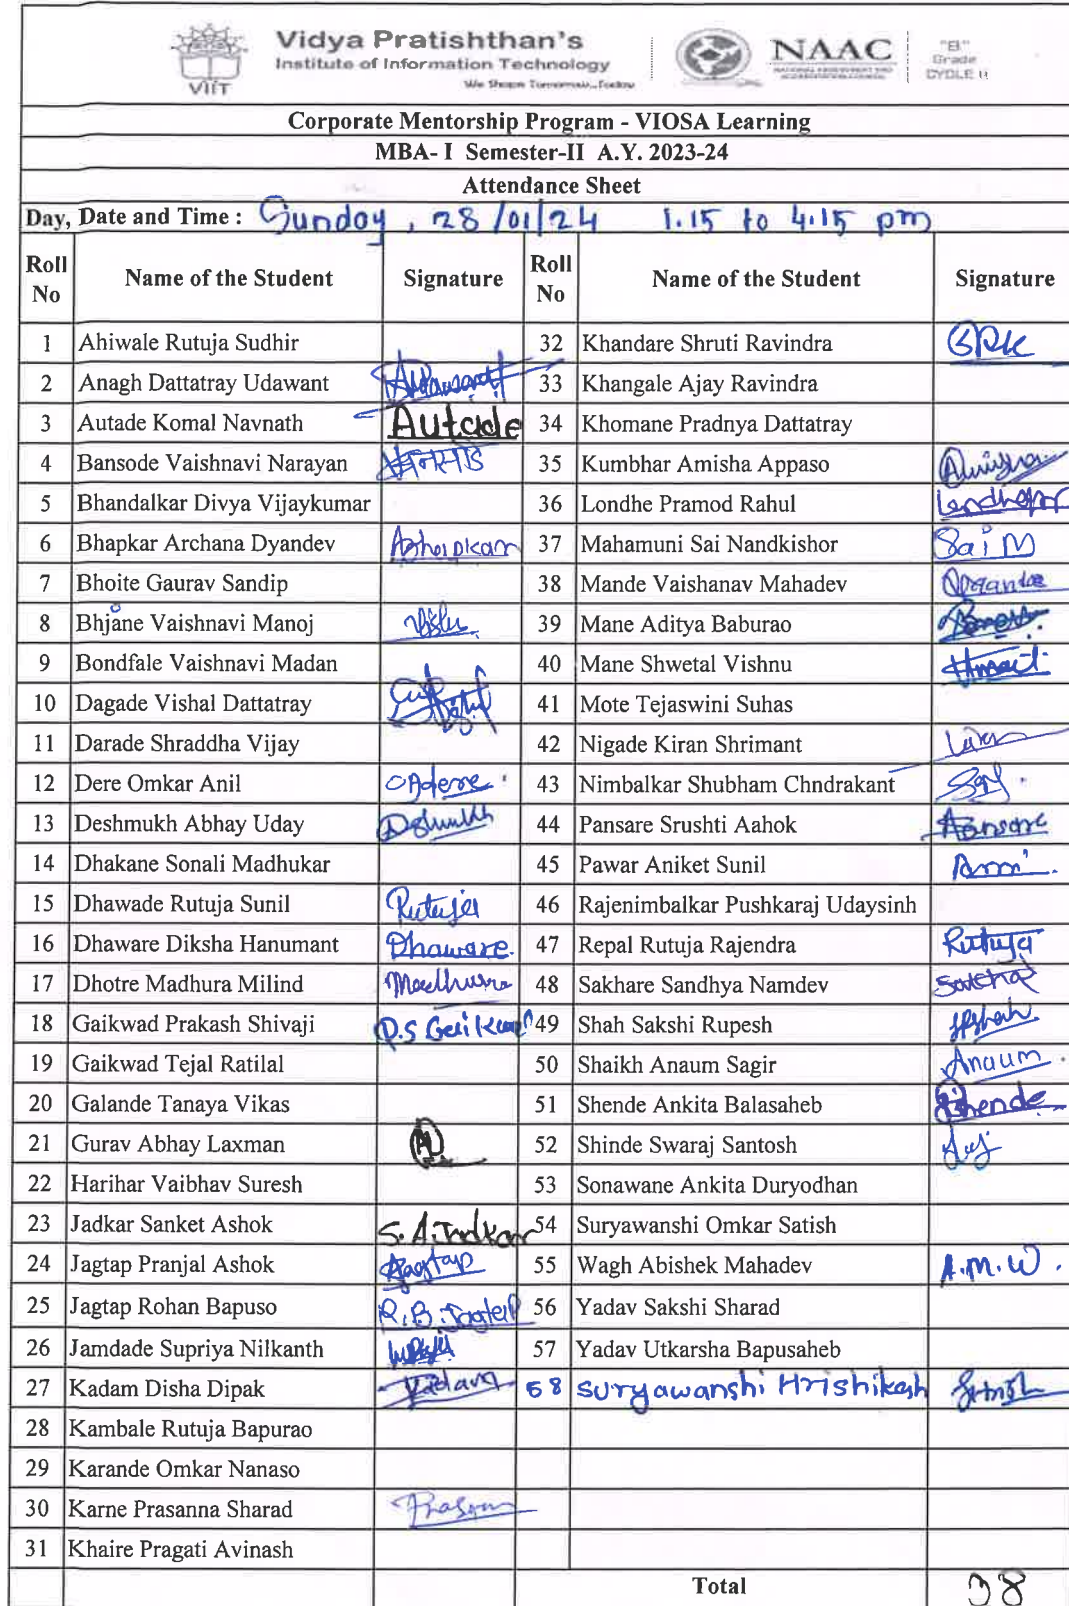 Vidya Pratishthan's
Institute of Information Technology
We Shape Tomorrow...Today
VIIT
NAAC
NATIONAL ASSESSMENT AND
ACCREDITATION COUNCIL
"B"
Grade
CYCLE II
Corporate Mentorship Program - VIOSA Learning
MBA- I Semester-II A.Y. 2023-24
Attendance Sheet
Day, Date and Time : Sunday, 28/01/24 1.15 to 4.15 pm
Roll No Name of the Student Signature Roll No Name of the Student Signature
1 Ahiwale Rutuja Sudhir 32 Khandare Shruti Ravindra SRK
2 Anagh Dattatray Udawant 33 Khangale Ajay Ravindra
3 Autade Komal Navnath Autade 34 Khomane Pradnya Dattatray
4 Bansode Vaishnavi Narayan 35 Kumbhar Amisha Appaso Amisha
5 Bhandalkar Divya Vijaykumar 36 Londhe Pramod Rahul
6 Bhapkar Archana Dyandev 37 Mahamuni Sai Nandkishor Sai M
7 Bhoite Gaurav Sandip 38 Mande Vaishanav Mahadev
8 Bhjane Vaishnavi Manoj 39 Mane Aditya Baburao
9 Bondfale Vaishnavi Madan 40 Mane Shwetal Vishnu
10 Dagade Vishal Dattatray 41 Mote Tejaswini Suhas
11 Darade Shraddha Vijay 42 Nigade Kiran Shrimant
12 Dere Omkar Anil 43 Nimbalkar Shubham Chndrakant
13 Deshmukh Abhay Uday 44 Pansare Srushti Aahok Pansare
14 Dhakane Sonali Madhukar 45 Pawar Aniket Sunil
15 Dhawade Rutuja Sunil Rutuja 46 Rajenimbalkar Pushkaraj Udaysinh
16 Dhaware Diksha Hanumant Dhaware 47 Repal Rutuja Rajendra Rutuja
17 Dhotre Madhura Milind Madhura 48 Sakhare Sandhya Namdev
18 Gaikwad Prakash Shivaji P.S Gaikwad 49 Shah Sakshi Rupesh
19 Gaikwad Tejal Ratilal 50 Shaikh Anaum Sagir Anaum
20 Galande Tanaya Vikas 51 Shende Ankita Balasaheb Shende
21 Gurav Abhay Laxman 52 Shinde Swaraj Santosh
22 Harihar Vaibhav Suresh 53 Sonawane Ankita Duryodhan
23 Jadkar Sanket Ashok S. A. Jadkar 54 Suryawanshi Omkar Satish
24 Jagtap Pranjal Ashok Jagtap 55 Wagh Abishek Mahadev A.M.W.
25 Jagtap Rohan Bapuso R.B. Jagtap 56 Yadav Sakshi Sharad
26 Jamdade Supriya Nilkanth 57 Yadav Utkarsha Bapusaheb
27 Kadam Disha Dipak 58 Suryawanshi Hrishikesh
28 Kambale Rutuja Bapurao
29 Karande Omkar Nanaso
30 Karne Prasanna Sharad
31 Khaire Pragati Avinash
Total 38